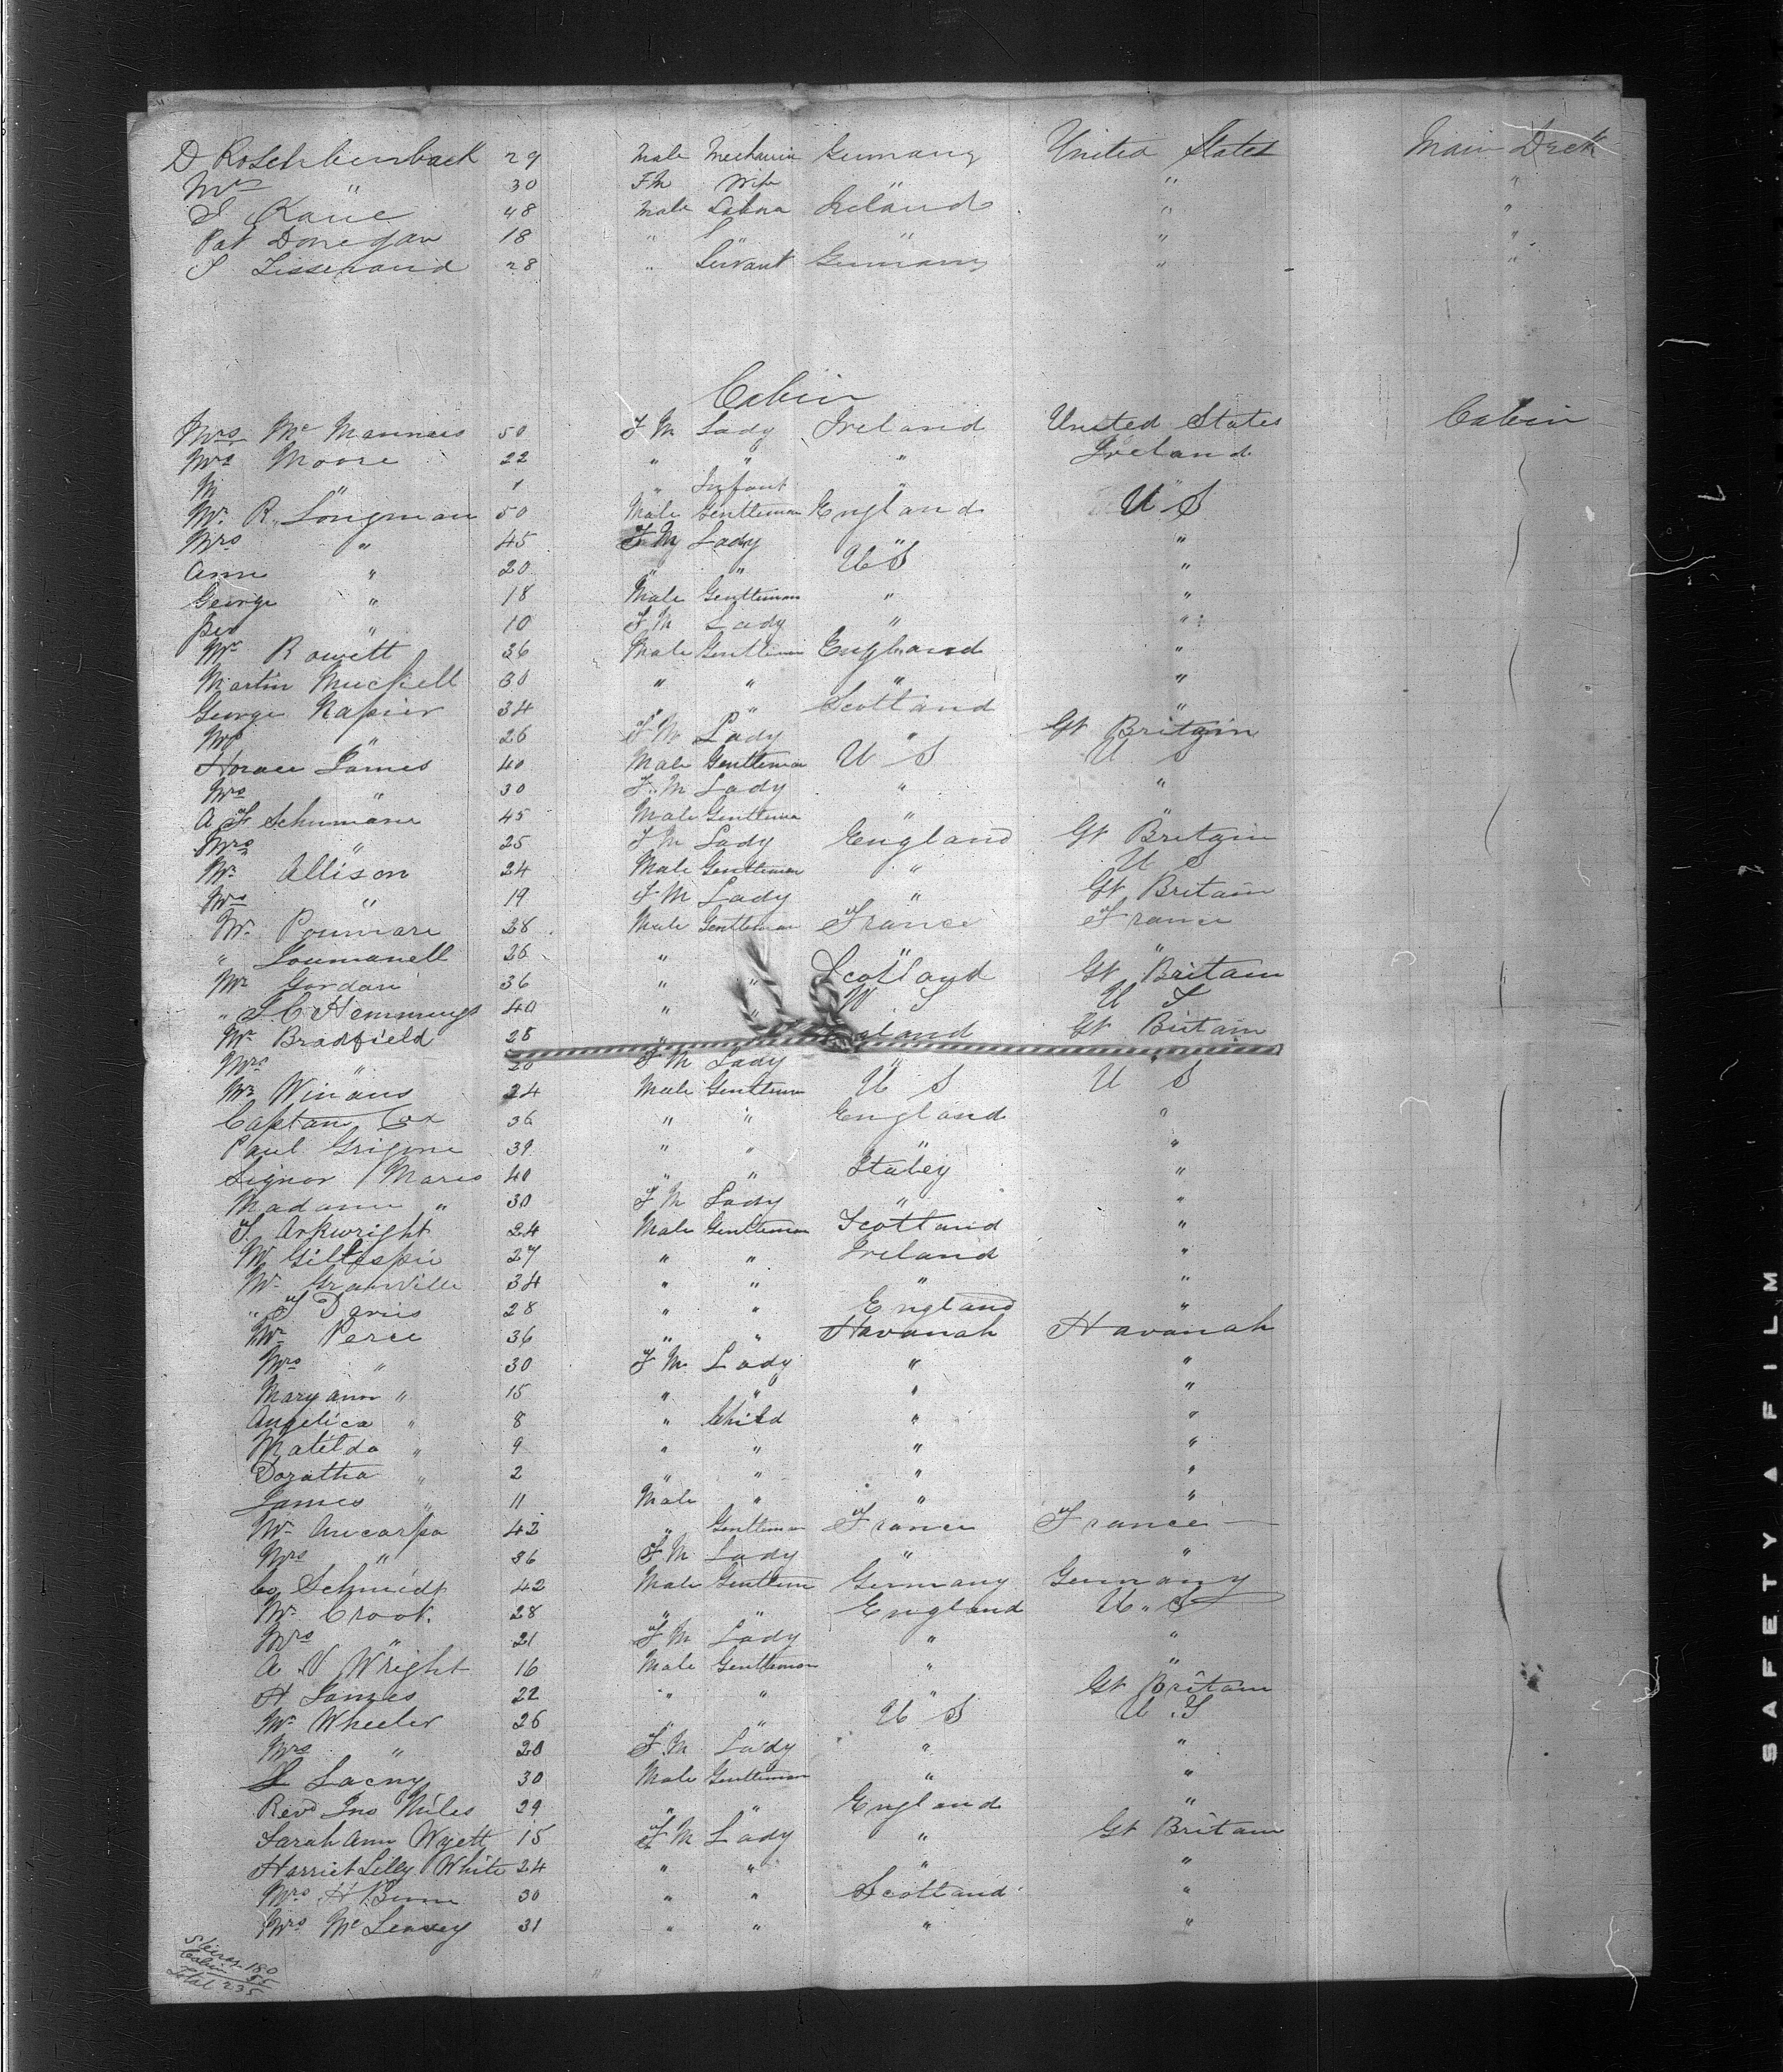 D Roschlenback 29 Male Mechanic Germany United States Main Deck
Mrs " 30 F M Wife " " "
S Kane 48 Male Labora Ireland " "
Pat Donegan 18 " " " " "
S Lisserand 28 " Servant Germany " "
Cabin
Mrs Mc Mannus 50 F M Lady Ireland United States Cabin
Mrs Moore 22 " " " Ireland
M " 1 " Infant " "
Mr R. Longman 50 Male Gentleman England U S
Mrs " 45 F M Lady " "
Ann " 20 " " U S "
George " 18 Male Gentleman " "
" 10 F M Lady " "
Mr Rowett 36 Male Gentleman England "
Martin Muckell 30 " " " "
George Napier 34 " " Scotland "
Mrs " 26 F M Lady " Gt Britain
Horace James 40 Male Gentleman U S U S
Mrs " 30 F M Lady " "
A F Schumann 45 Male Gentleman " "
Mrs " 25 F M Lady England Gt Britain
Mr Allison 24 Male Gentleman " U S
Mrs " 19 F M Lady " Gt Britain
Mr Poumare 28 Male Gentleman France France
" Loumanell 26 " " " "
Mr Gordan 36 " " Scotland Gt Britain "
" S. C. Hemmings 40 " " U S U S
Mr Bradfield 25 " England Gt Britain
Mrs " 20 F M Lady " "
Mr Winans 24 Male Gentleman U S U S
Captain Cox 36 " " England "
Paul Grigone 39 " " " "
Signor Mares 40 " " Italey "
Madame " 30 F M Lady " "
F. Arkwright 24 Male Gentleman Scotland "
Mr Gillespie 27 " " Ireland "
Mr Granville 34 " " " "
" F Davis 28 " " England "
Mr Perce 36 " " Havanah Havanah
Mrs " 30 F M Lady " "
Mary ann " 15 " " " "
Angelica " 8 " Child " "
Matilda " 9 " " " "
Doratha " 2 " " " "
James " 11 Male " " "
Mr Ancarpa 42 " Gentleman France France
Mrs " 36 F M Lady " "
Schmidt 42 Male Gentlem Germany Germany
Mr Crook. 28 " " England U. S
Mrs " 21 F M Lady " "
A V Wright 16 Male Gentleman " "
H James 22 " " " Gt Britain
Mr Wheeler 26 " " U S U. S
Mrs " 20 F. M Lady " "
L Lacny 30 Male Gentleman " "
Revd Jno Miles 29 " " England "
Sarah Ann Wyett 15 F M Lady " Gt Britain
Harriet Lilly White 24 " " " "
Mrs H Bunn 30 " " Scotland "
Mrs Mc Leavey 31 " " " "
Steerage 180
Cabin 55
Total 235
SAFETY ▲ FILM